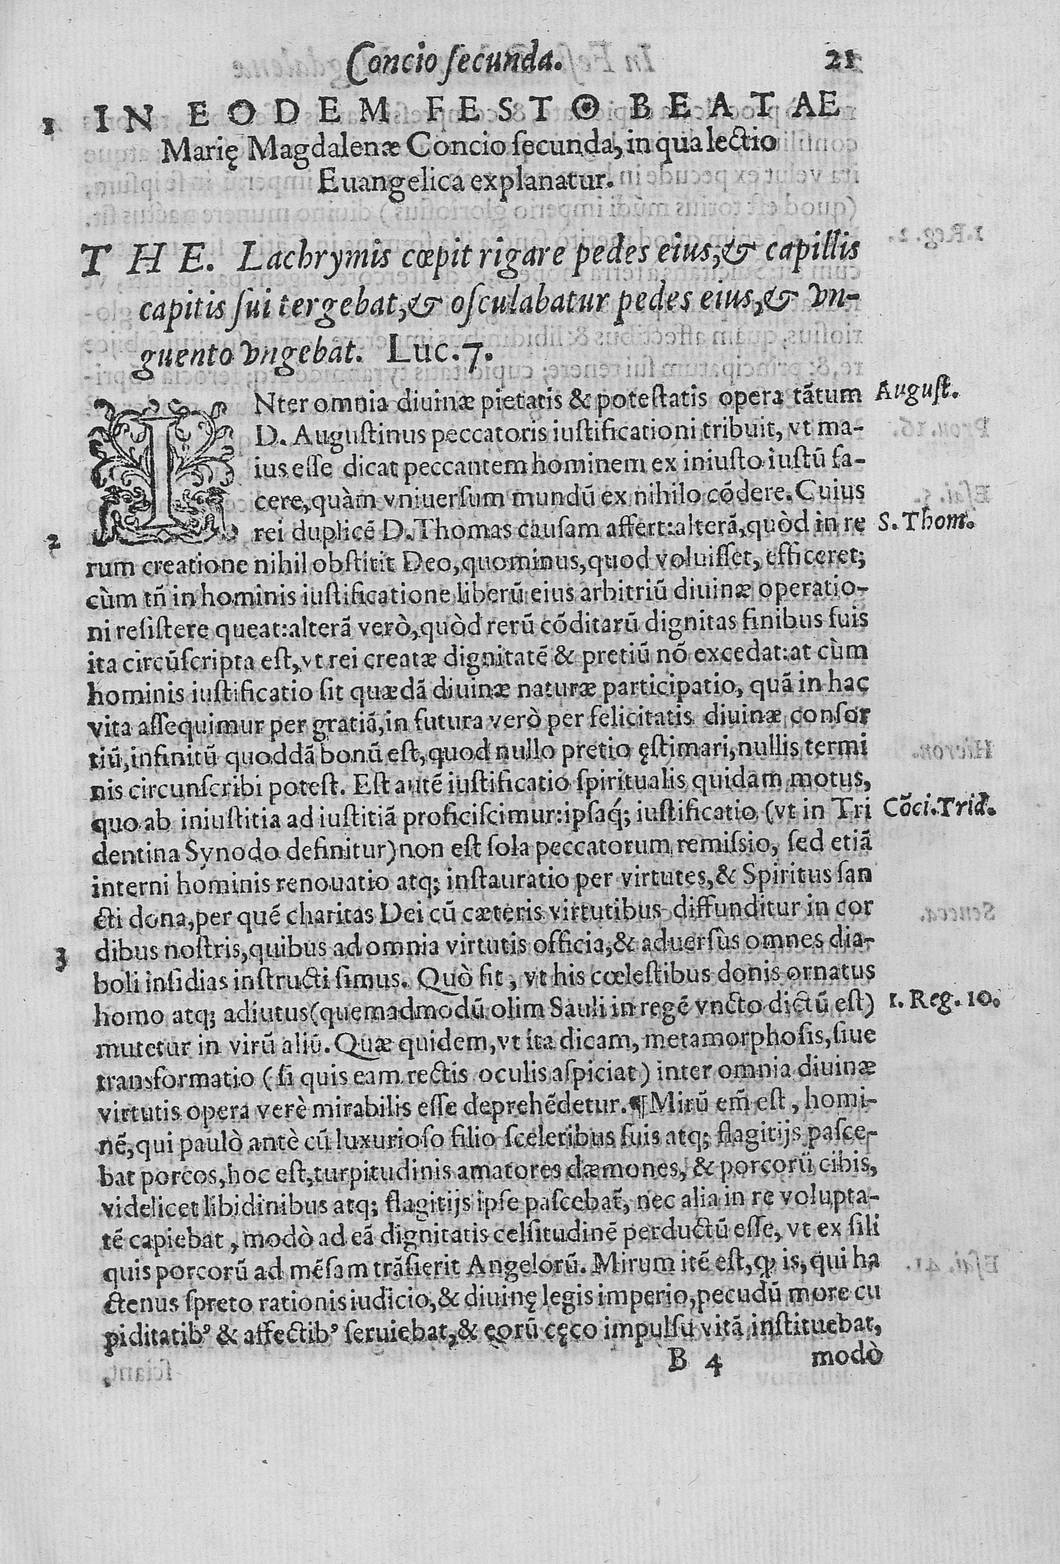 Concio secunda. 21
1 IN EODEM FESTO BEATAE
Marię Magdalenæ Concio secunda, in qua lectio
Euangelica explanatur.
THE. Lachrymis cœpit rigare pedes eius, & capillis
capitis sui tergebat, & osculabatur pedes eius, & vn-
guento vngebat. Luc. 7.
INter omnia diuinæ pietatis & potestatis opera tãtum August.
D. Augustinus peccatoris iustificationi tribuit, vt ma-
ius esse dicat peccantem hominem ex iniusto iustũ fa-
cere, quàm vniuersum mundũ ex nihilo cõdere. Cuius
2 rei duplicẽ D. Thomas causam affert: alterã, quòd in re S. Thom.
rum creatione nihil obstitit Deo, quominus, quod voluisset, efficeret;
cùm tñ in hominis iustificatione liberũ eius arbitriũ diuinæ operatio-
ni resistere queat: alterã verò, quòd rerũ cõditarũ dignitas finibus suis
ita circũscripta est, vt rei creatæ dignitatẽ & pretiũ nõ excedat: at cùm
hominis iustificatio sit quædã diuinæ naturæ participatio, quã in hac
vita assequimur per gratiã, in futura verò per felicitatis diuinæ consor
tiũ, infinitũ quoddã bonũ est, quod nullo pretio ęstimari, nullis termi
nis circunscribi potest. Est autẽ iustificatio spiritualis quidam motus,
quo ab iniustitia ad iustitiã proficiscimur: ipsaq́; iustificatio (vt in Tri Cõci. Trid.
dentina Synodo definitur) non est sola peccatorum remissio, sed etiã
interni hominis renouatio atq; instauratio per virtutes, & Spiritus san
cti dona, per quẽ charitas Dei cũ cæteris virtutibus diffunditur in cor
3 dibus nostris, quibus ad omnia virtutis officia, & aduersùs omnes dia-
boli insidias instructi simus. Quò fit, vt his cœlestibus donis ornatus
homo atq; adiutus (quemadmodũ olim Sauli in regẽ vncto dictũ est) 1. Reg. 10.
mutetur in virũ aliũ. Quæ quidem, vt ita dicam, metamorphosis, siue
transformatio (si quis eam rectis oculis aspiciat) inter omnia diuinæ
virtutis opera verè mirabilis esse deprehẽdetur. ¶ Mirũ em̃ est, homi-
nẽ, qui paulò antè cũ luxurioso filio sceleribus suis atq; flagitijs pasce-
bat porcos, hoc est, turpitudinis amatores dæmones, & porcorũ cibis,
videlicet libidinibus atq; flagitijs ipse pascebat̃, nec alia in re volupta-
tẽ capiebat, modò ad eã dignitatis celsitudinẽ perductũ esse, vt ex sili
quis porcorũ ad mẽsam trãsierit Angelorũ. Mirum itẽ est, ꝙ is, qui ha
ctenus spreto rationis iudicio, & diuinę legis imperio, pecudũ more cu
piditatibꝰ & affectibꝰ seruiebat, & eorũ cęco impulsu vitã instituebat,
B 4 modò